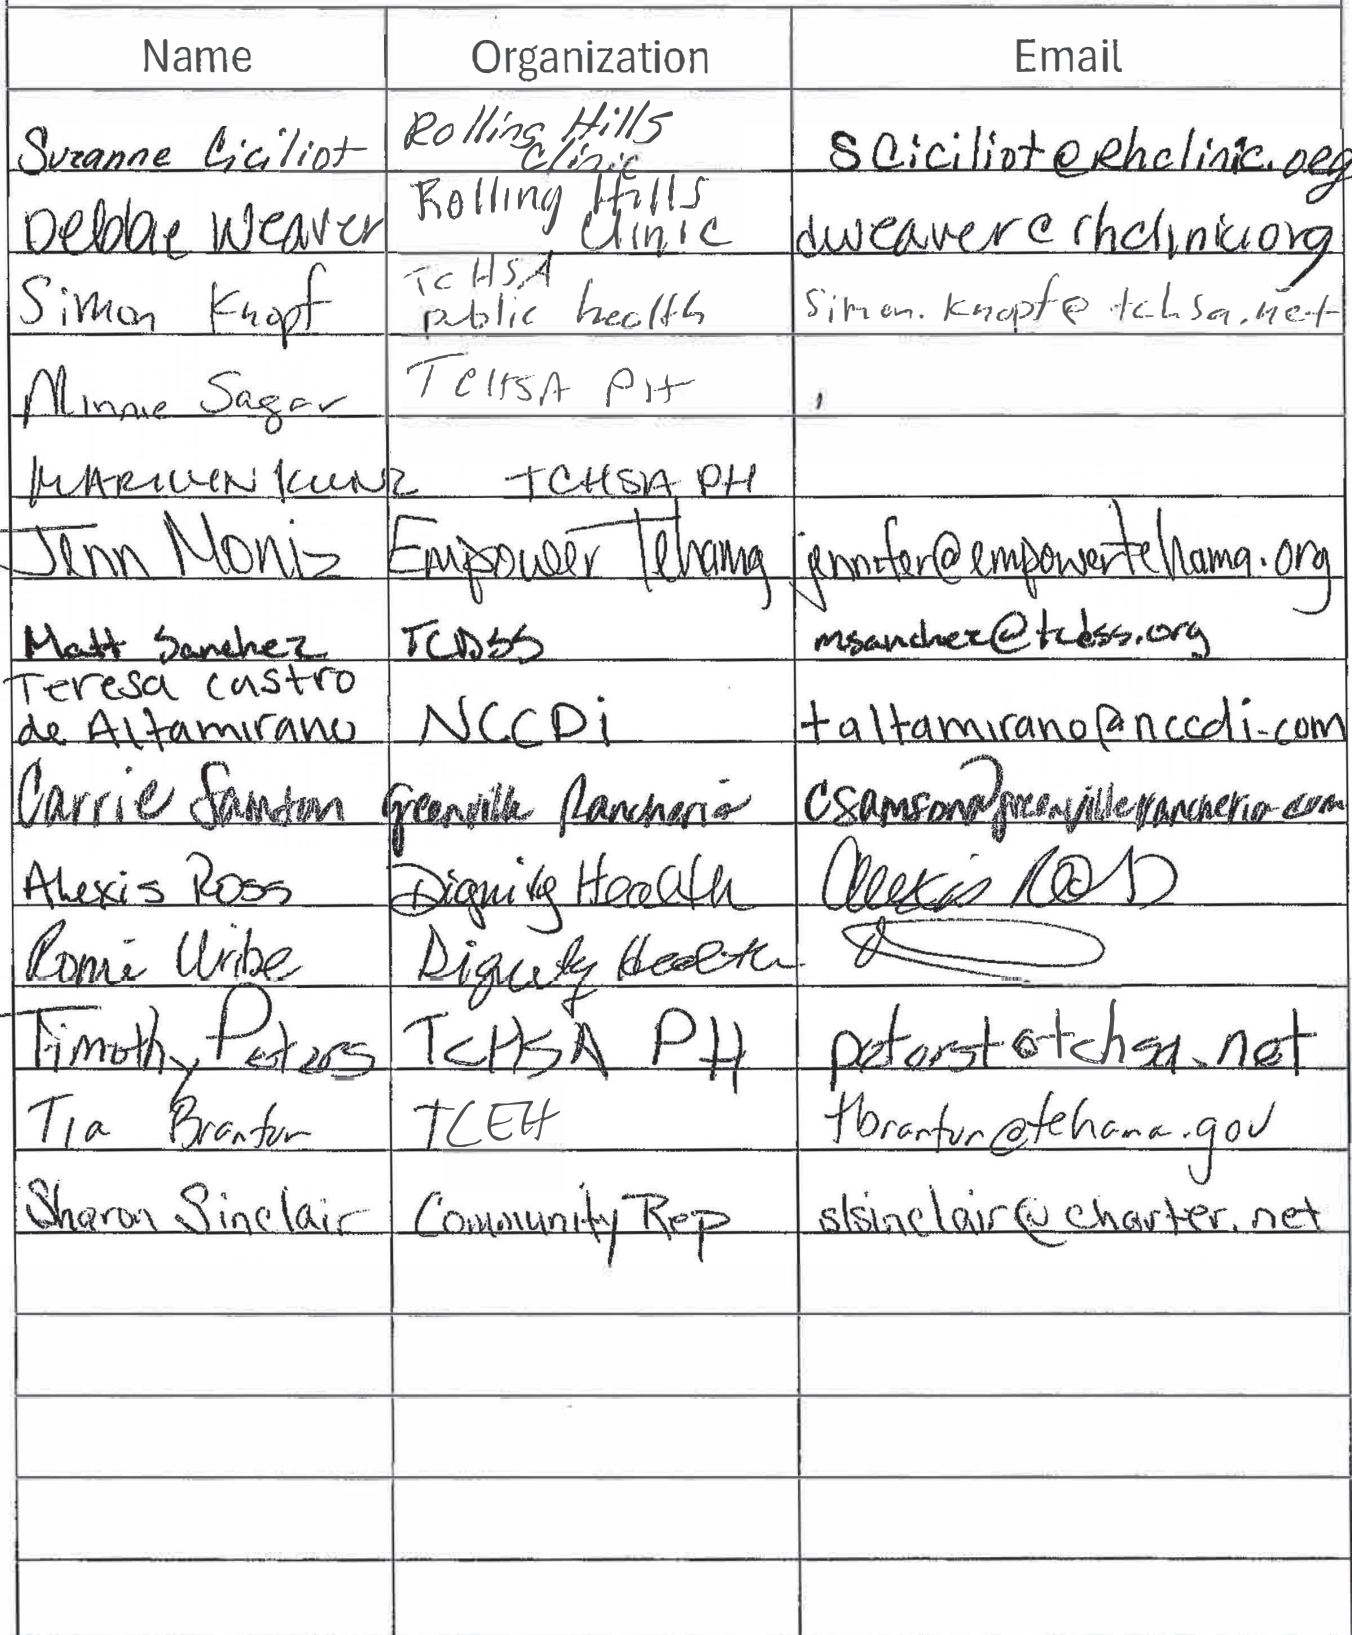 Name Organization Email
Suzanne Ciciliot Rolling Hills Clinic sciciliot@rhclinic.org
Debbie Weaver Rolling Hills Clinic dweaver@rhclinic.org
Simon Knopf TCHSA public health simon.knopf@tchsa.net
Minnie Sagar TCHSA PH
MARILYN KUNZ TCHSA PH
Jenn Moniz Empower Tehama jennifer@empowertehama.org
Matt Sanchez TCDSS msanchez@tcdss.org
Teresa castro
de Altamirano NCCDi taltamirano@nccdi.com
Carrie Samson Greenville Rancheria csamson@greenvillerancheria.com
Alexis Ross Dignity Health Alexis R@D
Uribe Dignity Health
Timothy Peters TCHSA PH peterst@tchsa.net
Tia Branton TCEH tbranton@tehama.gov
Sharon Sinclair Community Rep slsinclair@charter.net